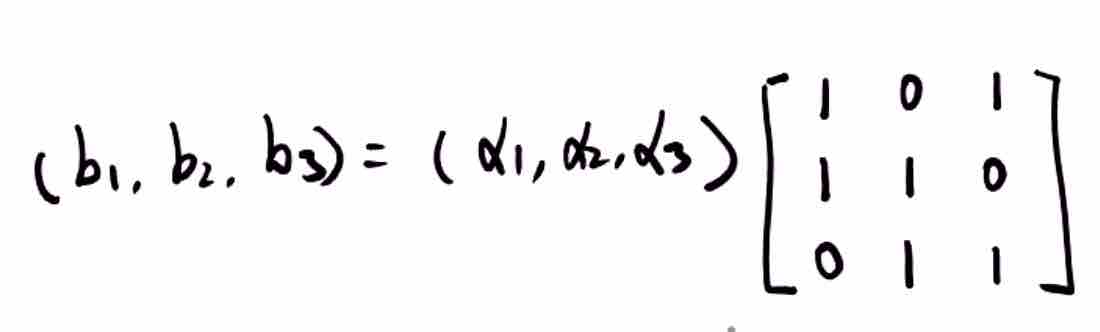 (b₁, b₂, b₃) = (α₁, α₂, α₃) [1 0 1
1 1 0
0 1 1]